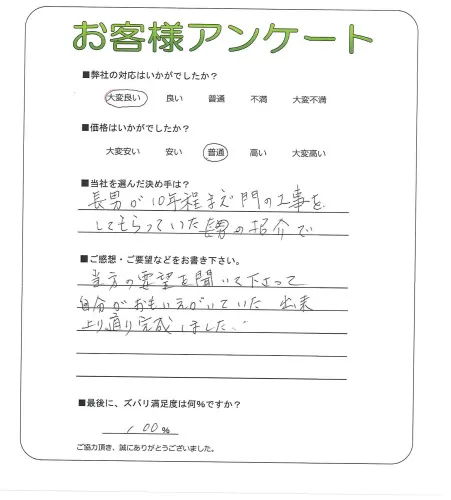 お客様アンケート
■弊社の対応はいかがでしたか？
大変良い 良い 普通 不満 大変不満
■価格はいかがでしたか？
大変安い 安い 普通 高い 大変高い
■当社を選んだ決め手は？
長男が10年程まえ門の工事を
してもらっていた長男の紹介で
■ご感想・ご要望などをお書き下さい。
当方の要望を聞いて下さって
自分がおもいえがいていた 出来
上り通り完成しました
■最後に、ズバリ満足度は何％ですか？
100％
ご協力頂き、誠にありがとうございました。